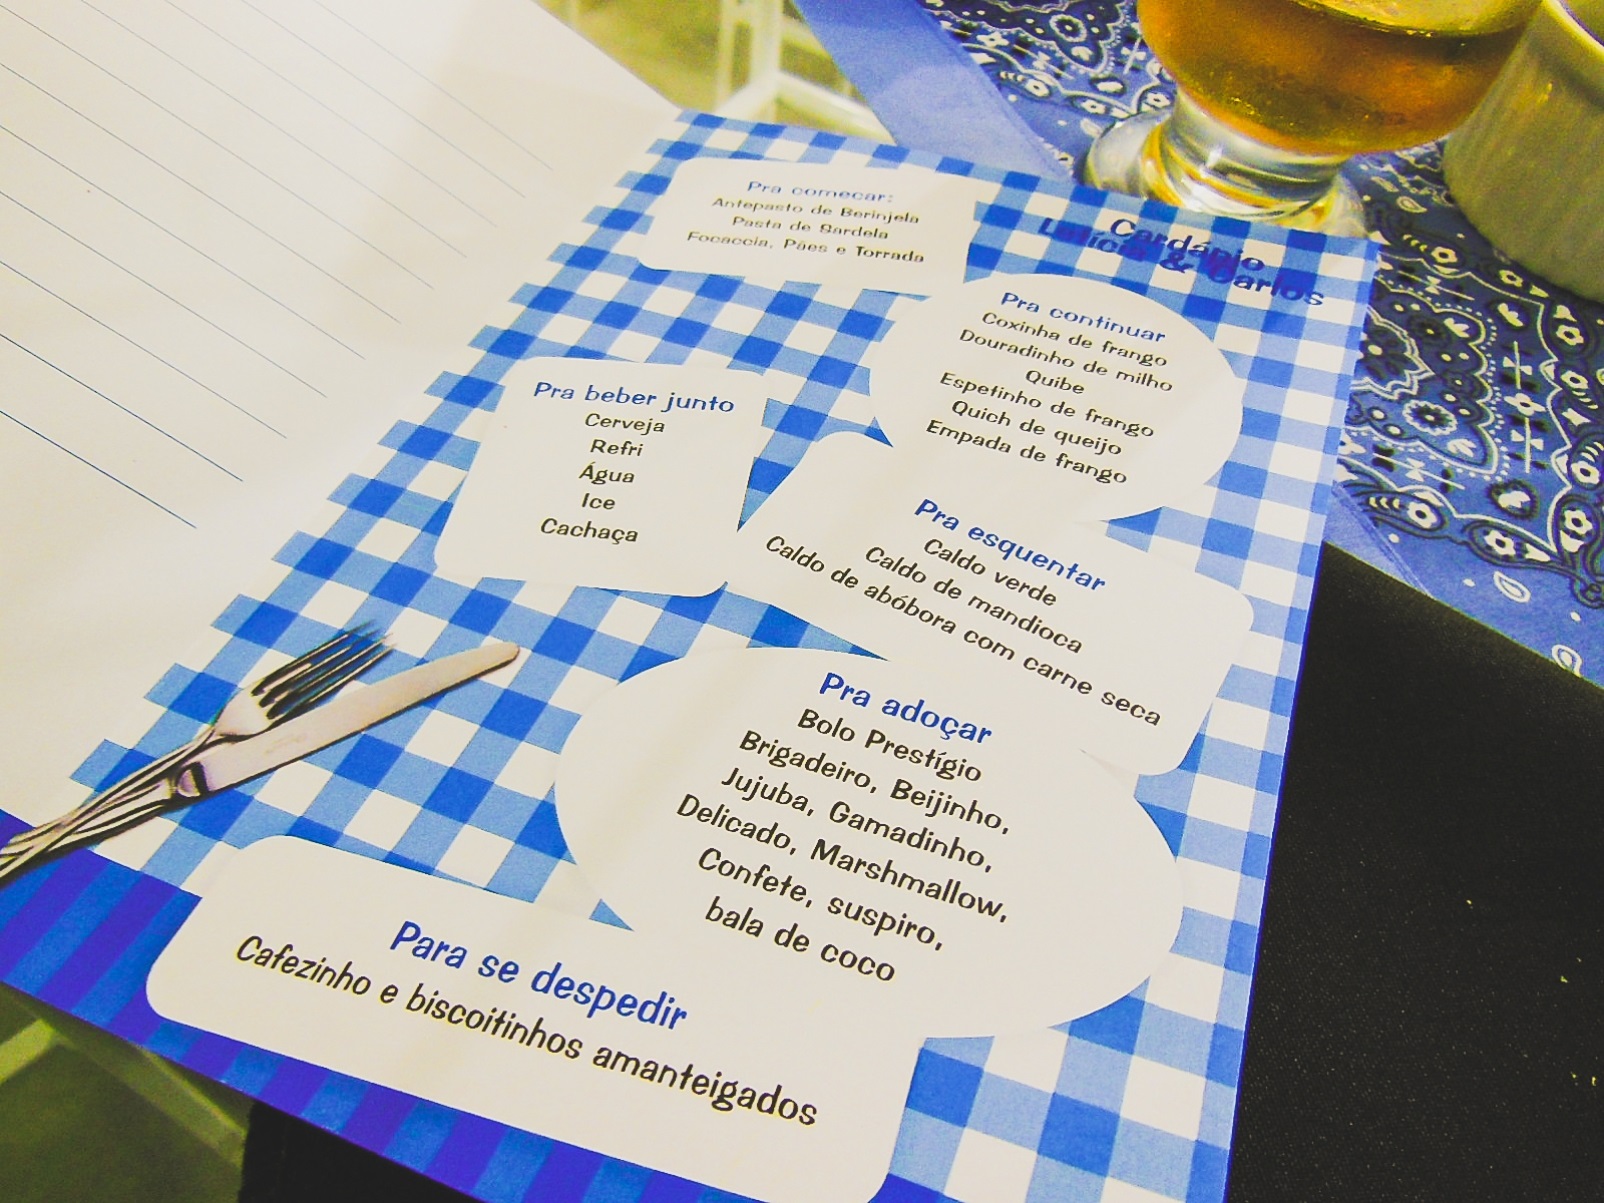 Cardápio
Letícia & Carlos
Pra começar:
Antepasto de Berinjela
Pasta de Sardela
Focaccia, Pães e Torrada
Pra continuar
Coxinha de frango
Douradinho de milho
Quibe
Espetinho de frango
Quich de queijo
Empada de frango
Pra beber junto
Cerveja
Refri
Água
Ice
Cachaça
Pra esquentar
Caldo verde
Caldo de mandioca
Caldo de abóbora com carne seca
Pra adoçar
Bolo Prestígio
Brigadeiro, Beijinho,
Jujuba, Gamadinho,
Delicado, Marshmallow,
Confete, suspiro,
bala de coco
Para se despedir
Cafezinho e biscoitinhos amanteigados